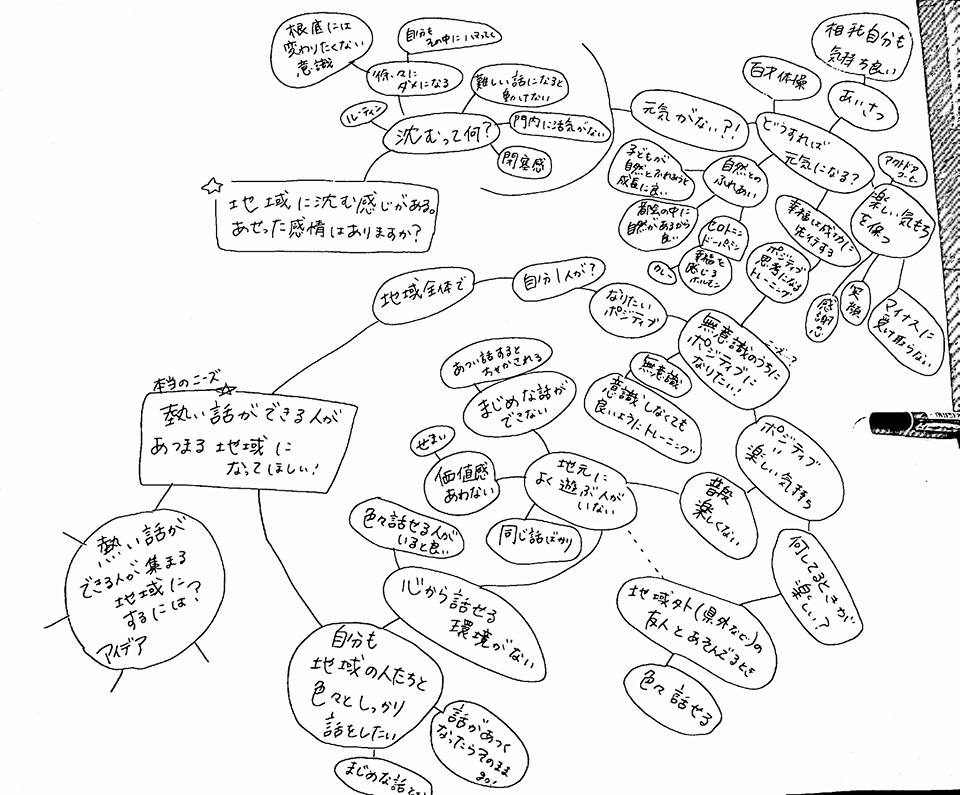 根底には
変わりたくない
意識
自分も
その中にハマってく
徐々に
ダメになる
ルーティン
沈むって何？
難しい話になると
動けない
門内に活気がない
閉塞感
地域に沈む感じがある。
あせった感情はありますか？
元気がない？！
どうすれば
元気になる？
百才体操
あいさつ
相手も自分も
気持ち良い
自然との
ふれあい
子どもが
自然とふれあうと
成長に良い
都会の中に
自然があるから
良い
セロトニン
ドーパミン
幸福を
感じる
ホルモン
カレー
幸福は成功に
先行する
ポジティブ
思考になる
トレーニング
楽しい気もち
を保つ
アウトドア
感謝の心
笑顔
マイナスに
受け取らない
地域全体で
自分1人が？
なりたい
ポジティブ
無意識のうちに
ポジティブに
なりたい！
ニーズ？
無意識
意識しなくても
良いようにトレーニング
ポジティブ
〃
楽しい気持ち
普段
楽しくない
何してるときが
楽しい？
地域外（県外など）の
友人とあそんでるとき
色々話せる
地元に
よく遊ぶ人が
いない
まじめな話が
できない
あつい話すると
ちゃかされる
価値感
あわない
せまい
同じ話ばかり
心から話せる
環境がない
色々話せる人が
いると良い
自分も
地域の人たちと
色々としっかり
話をしたい
話があつく
なったらそのまま
go!
まじめな話
本当のニーズ
熱い話ができる人が
あつまる地域に
なってほしい！
熱い話が
できる人が集まる
地域に
するには？
アイデア